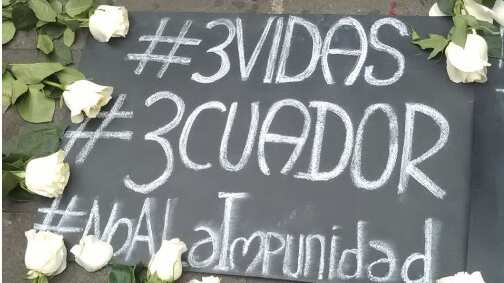 #3VIDAS
#3CUADOR
#NoALaImpunidad